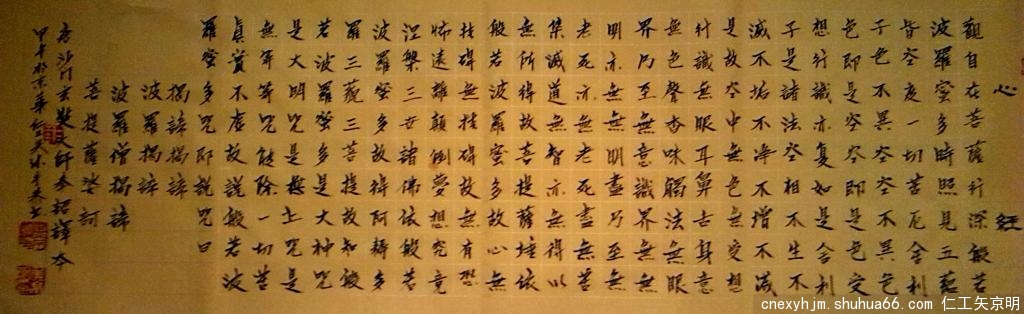 心經
觀自在菩薩行深般若
波羅蜜多時照見五蘊
皆空度一切苦厄舍利
子色不異空空不異色
色即是空空即是色受
想行識亦復如是舍利
子是諸法空相不生不
滅不垢不淨不增不減
是故空中無色無受想
行識無眼耳鼻舌身意
無色聲香味觸法無眼
界乃至無意識界無無
明亦無無明盡乃至無
老死亦無老死盡無苦
集滅道無智亦無得以
無所得故菩提薩埵依
般若波羅蜜多故心無
挂礙無挂礙故無有恐
怖遠離顛倒夢想究竟
涅槃三世諸佛依般若
波羅蜜多故得阿耨多
羅三藐三菩提故知般
若波羅蜜多是大神咒
是大明咒是無上咒是
無等等咒能除一切苦
真實不虛故說般若波
羅蜜多咒即說咒曰
揭諦揭諦
波羅揭諦
波羅僧揭諦
菩提薩婆訶
沙門玄奘師奉詔譯本
甲午於京華仁
cnexyhjm.shuhua66.com 仁工矢京明